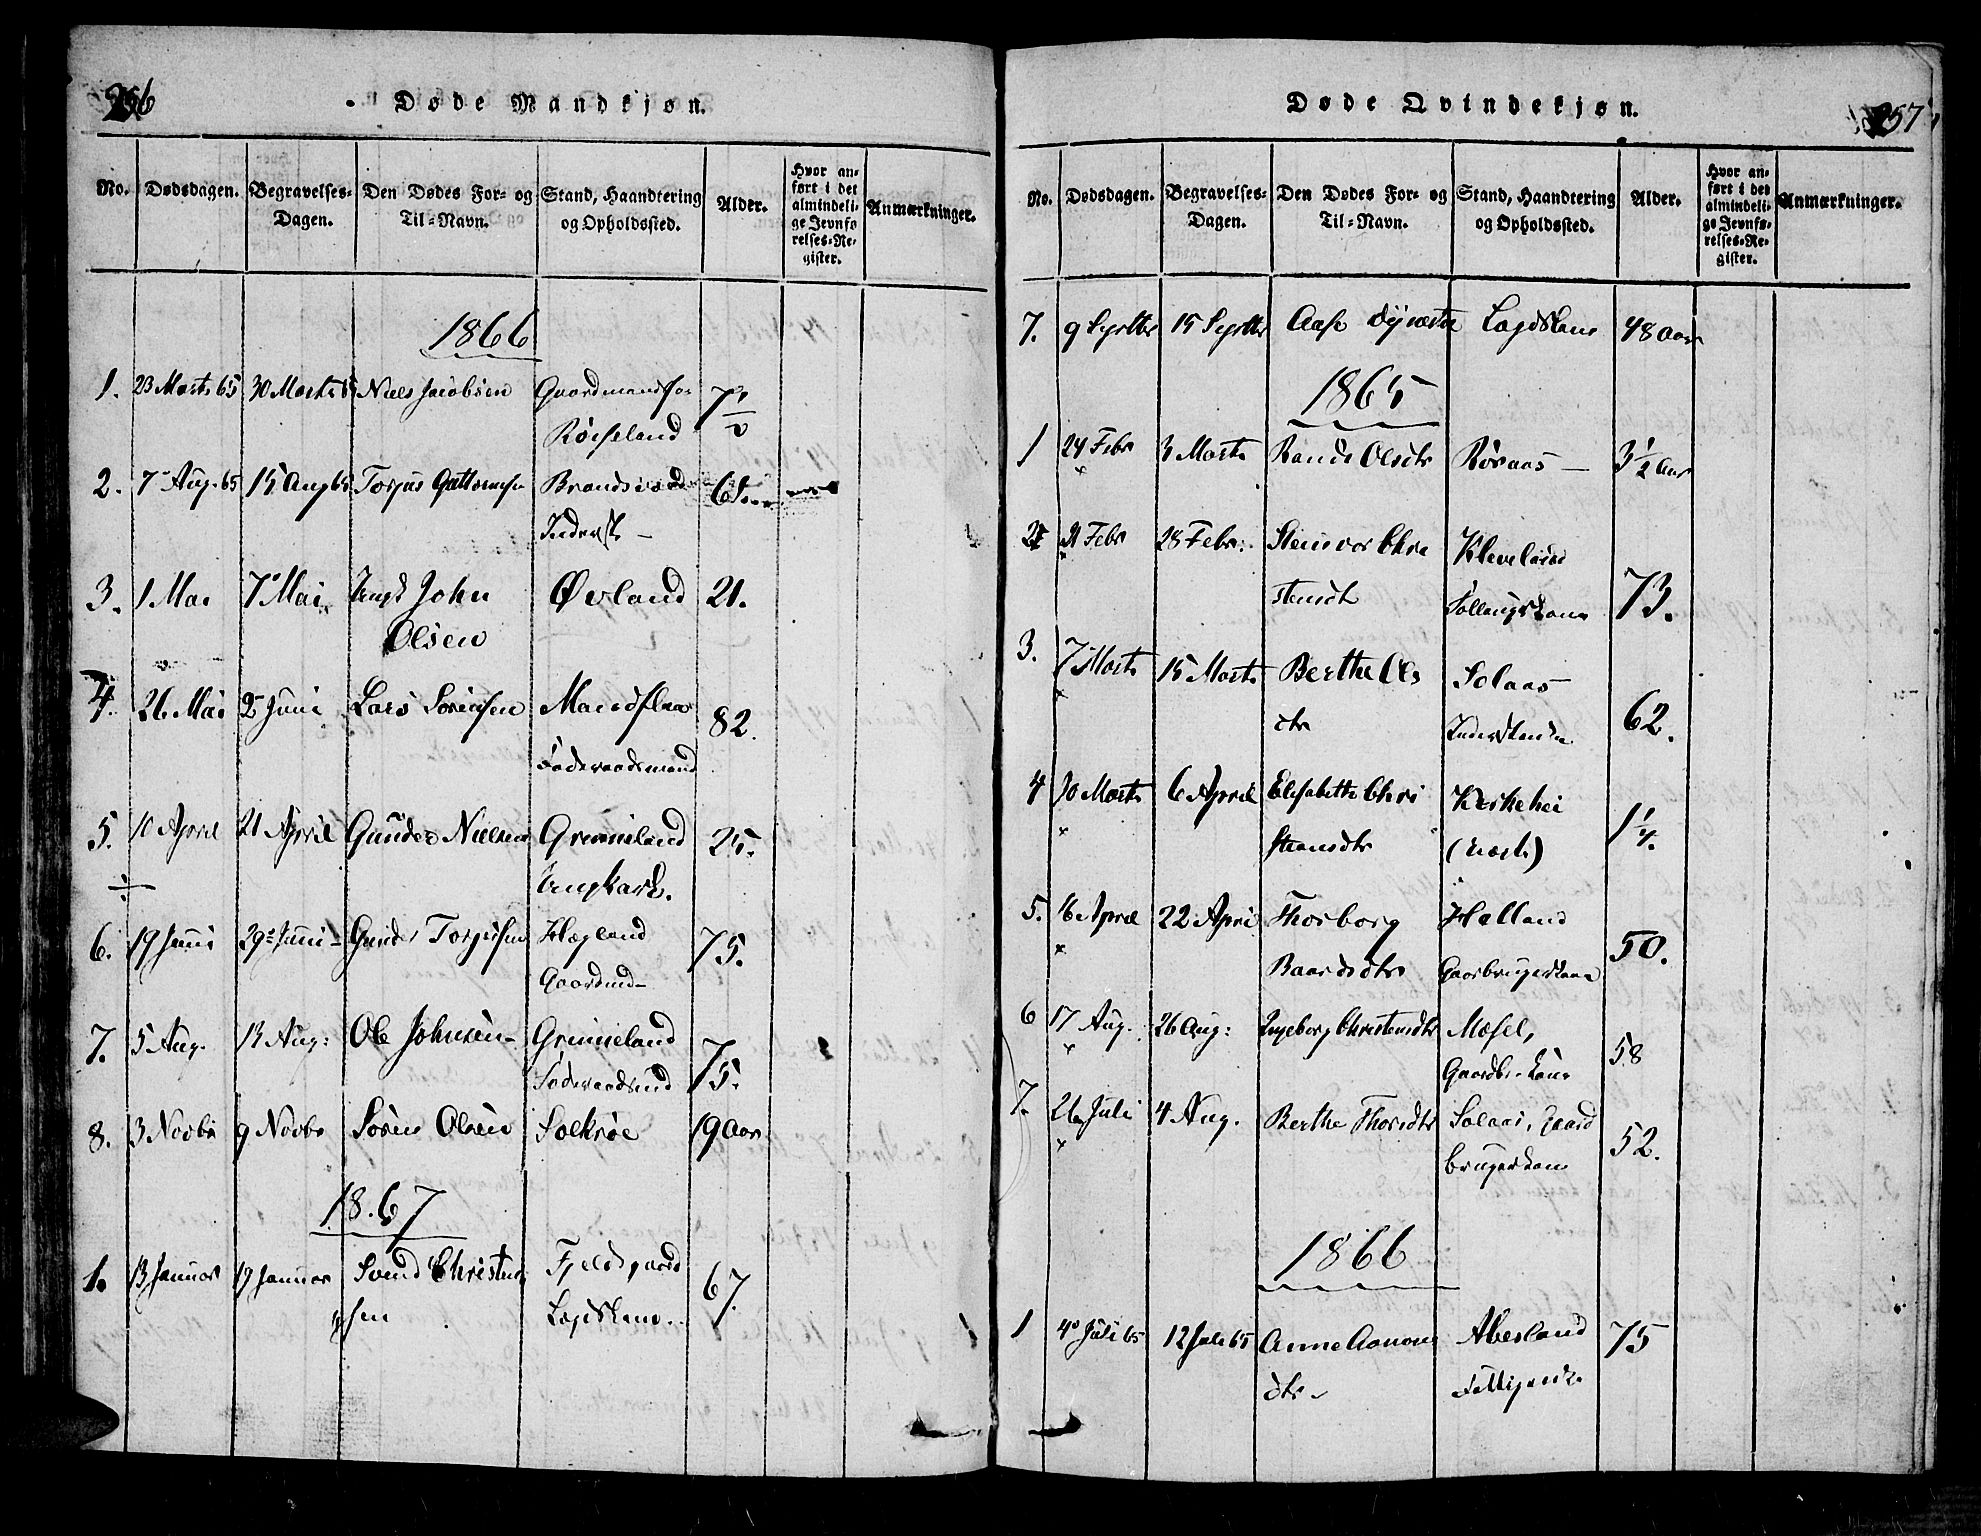 256
Døde Mandkjøn.
No. Dødsdagen. Begravelses-Dagen. Den Dødes For- og Til-Navn. Stand, Haandtering og Opholdssted. Alder. Hvor anført i det almindelige Jevnførelses-Register. Anmærkninger.
1866
1. 23 Marts 65 30 Marts 65 Niels Jacobsen Gaardmands
Røiseland
2. 7 Aug. 65 15 Aug 65 Torjus Guttormsen Brandsvold 61
Inderst
3. 1 Mai 7 Mai Ungk John Øvland 21.
Olsen
4. 26 Mai 2 Juni Lars Sørensen Mandflaa 82.
Føderaadsmand
5. 10 April 21 April Gunder Nielsen Grimeland 25.
Ungkarl.
6. 19 Juni 29 Juni Gunder Torjusen Hægland 75.
Gaardmd
7. 5 Aug. 13 Aug: Ole Johnsen Grimeland 75.
Føderaadsmd
8. 3 Novbr 9 Novbr Søren Olsen Solkröe 19 Aar
1867
1. 13 Januar 19 Januar Svend Christen Fjeldsgaard 67.
sen Lægdslem
257
Døde Qvindekjøn.
No. Dødsdagen. Begravelses-Dagen. Den Dødes For- og Til-Navn. Stand, Haandtering og Opholdssted. Alder. Hvor anført i det almindelige Jevnførelses-Register. Anmærkninger.
7. 9 Septbr 15 Septbr Aase Lægdslem 48 Aar
1865
1 24 Febr 3 Marts Randi Olsdtr Røraas 3 1/2 Aar
2 21 Febr 28 Febr: Steinvor Chri Kleveland
stensdtr 73.
3. 7 Marts 15 Marts Berthe Ols Solaas
dtr 62.
4 30 Marts 6 April Elisabeth Chri Kirkehei 1 1/4.
stensdtr
5. 16 April 22 April Thorborg Helland
Baardsdtr Gaarbrugerkone 50.
6 17 Aug. 26 Aug: Ingeborg Christensdtr Mosel, 58
Gaardbr. kone
7. 26 Juli 4 Aug. Berthe Thorsdtr Solaas, Gaard 52.
brugerkone
1866
1 4 Juli 65 12 Juli 65 Anne Aanons Abusland 75
dtr